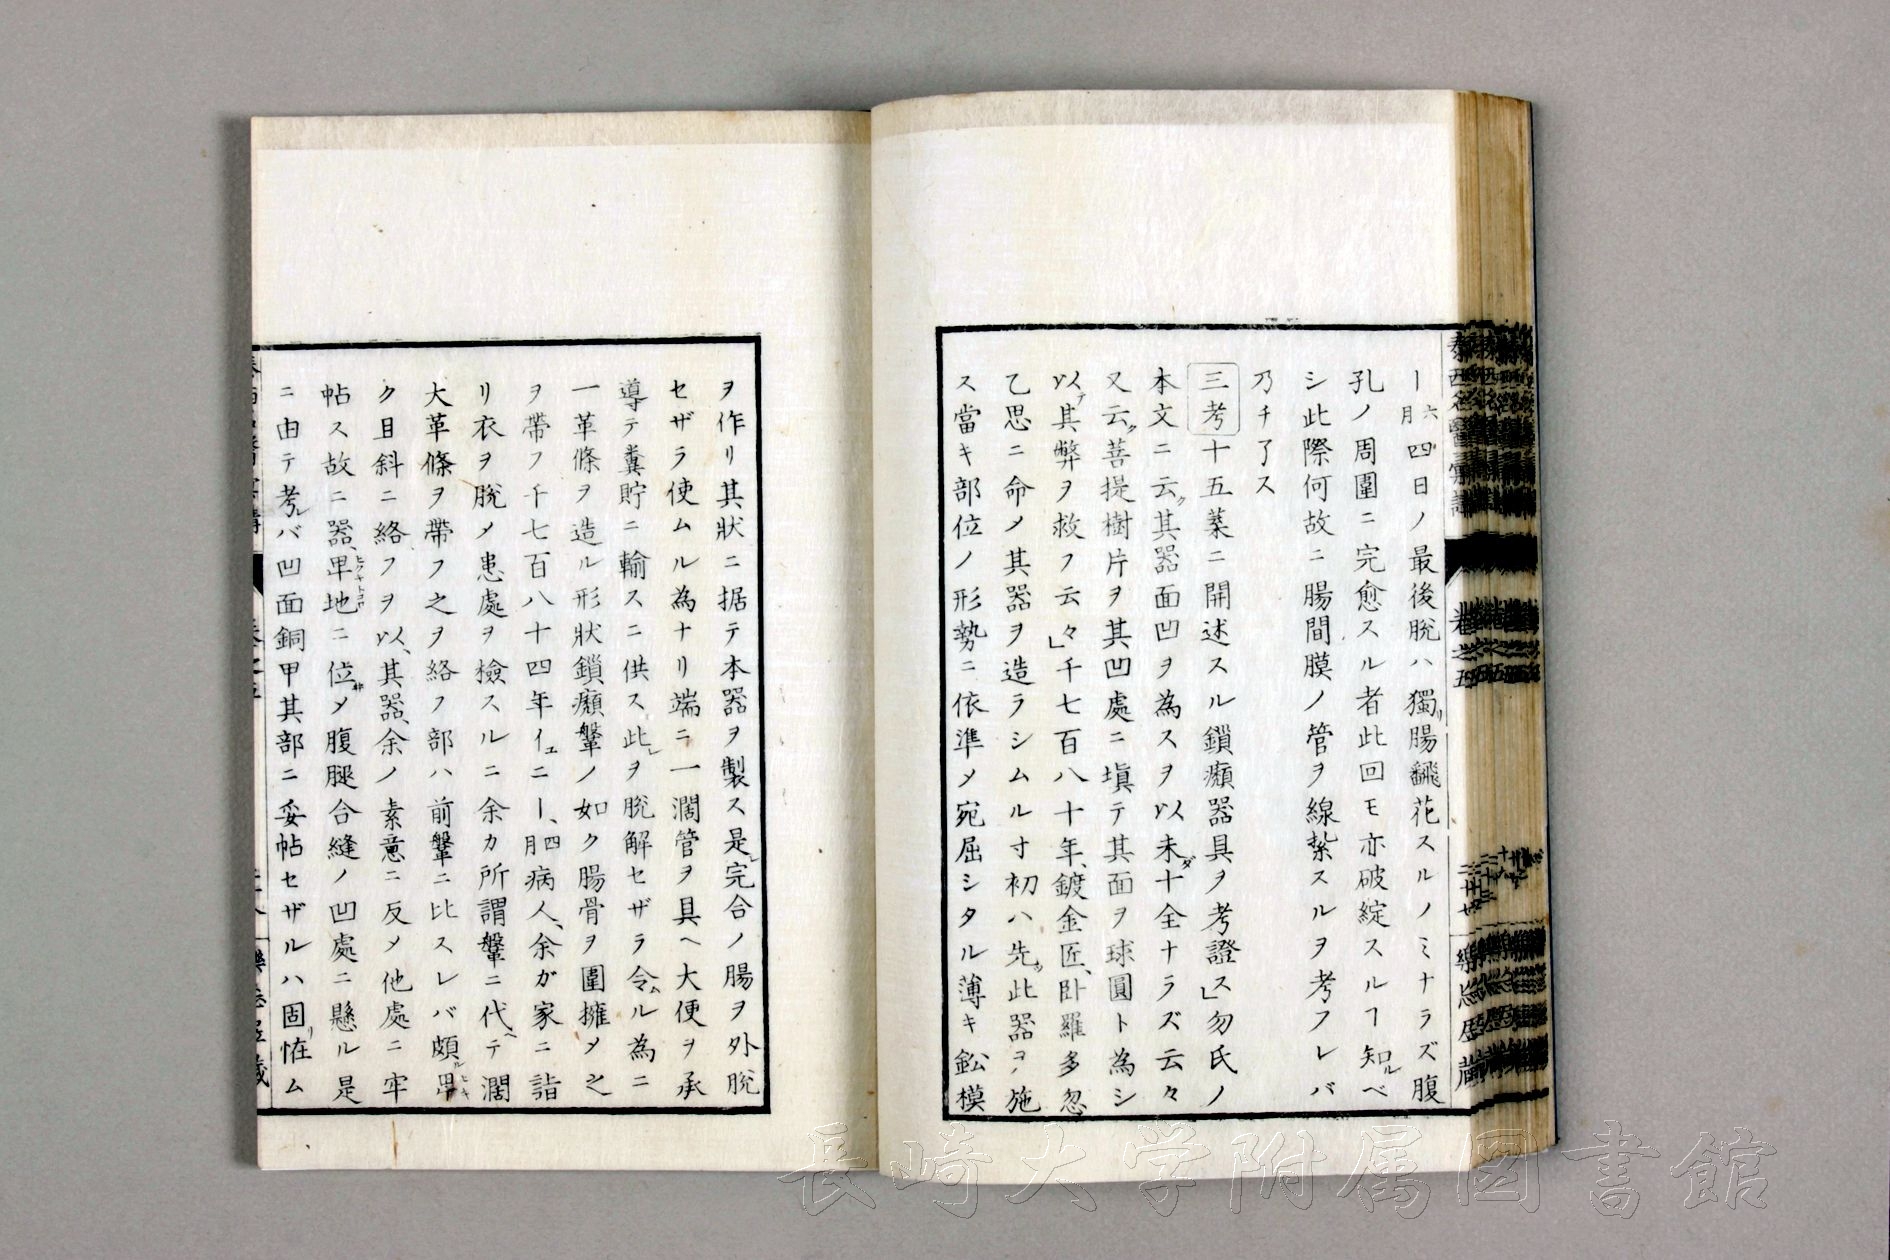 ー六月四日ノ最後脱ハ獨リ腸飜花スルノミナラズ腹
孔ノ周圍ニ完愈スル者此回モ亦破綻スルヿ知ルベ
シ此際何故ニ腸間膜ノ管ヲ線紮スルヲ考フレバ
乃チ了ス
三考十五葉ニ開述スル鎖癩器具ヲ考證ス」勿氏ノ
本文ニ云ク其器面凹ヲ為スヲ以未ダ十全ナラズ云々
又云ク菩提樹片ヲ其凹處ニ塡テ其面ヲ球圓ト為シ
以テ其弊ヲ救フ云々」千七百八十年、鍍金匠、卧羅多忽
乙思ニ命メ其器ヲ造ラシムル寸初ハ先ツ此器ヲ施
ス當キ部位ノ形勢ニ依準メ宛屈シタル薄キ鈆模
ヲ作リ其狀ニ据テ本器ヲ製ス是レ完合ノ腸ヲ外脱
セザラ使ムル為ナリ端ニ一濶管ヲ具ヘ大便ヲ承
導テ糞貯ニ輸スニ供ス此レヲ脱解セザラ令ムル為ニ
一革條ヲ造ル形狀鎖癩鞶ノ如ク腸骨ヲ圍擁メ之
ヲ帶フ千七百八十四年イユニー、四月病人、余ガ家ニ詣
リ衣ヲ脱メ患處ヲ檢スルニ余カ所謂鞶ニ代ヘテ濶
大革條ヲ帶フ之ヲ絡フ部ハ前鞶ニ比スレバ頗ル卑ヒキ
ク且斜ニ絡フヲ以、其器、余ノ素意ニ反メ他處ニ牢
帖ス故ニ器、卑地ヒクキトコロニ位メ腹腿合縫ノ凹處ニ懸ル是
ニ由テ考レバ凹面銅甲其部ニ妥帖セザルハ固リ恠ム
泰西名醫彙講
卷之五
樂忘居藏
長崎大学附属図書館